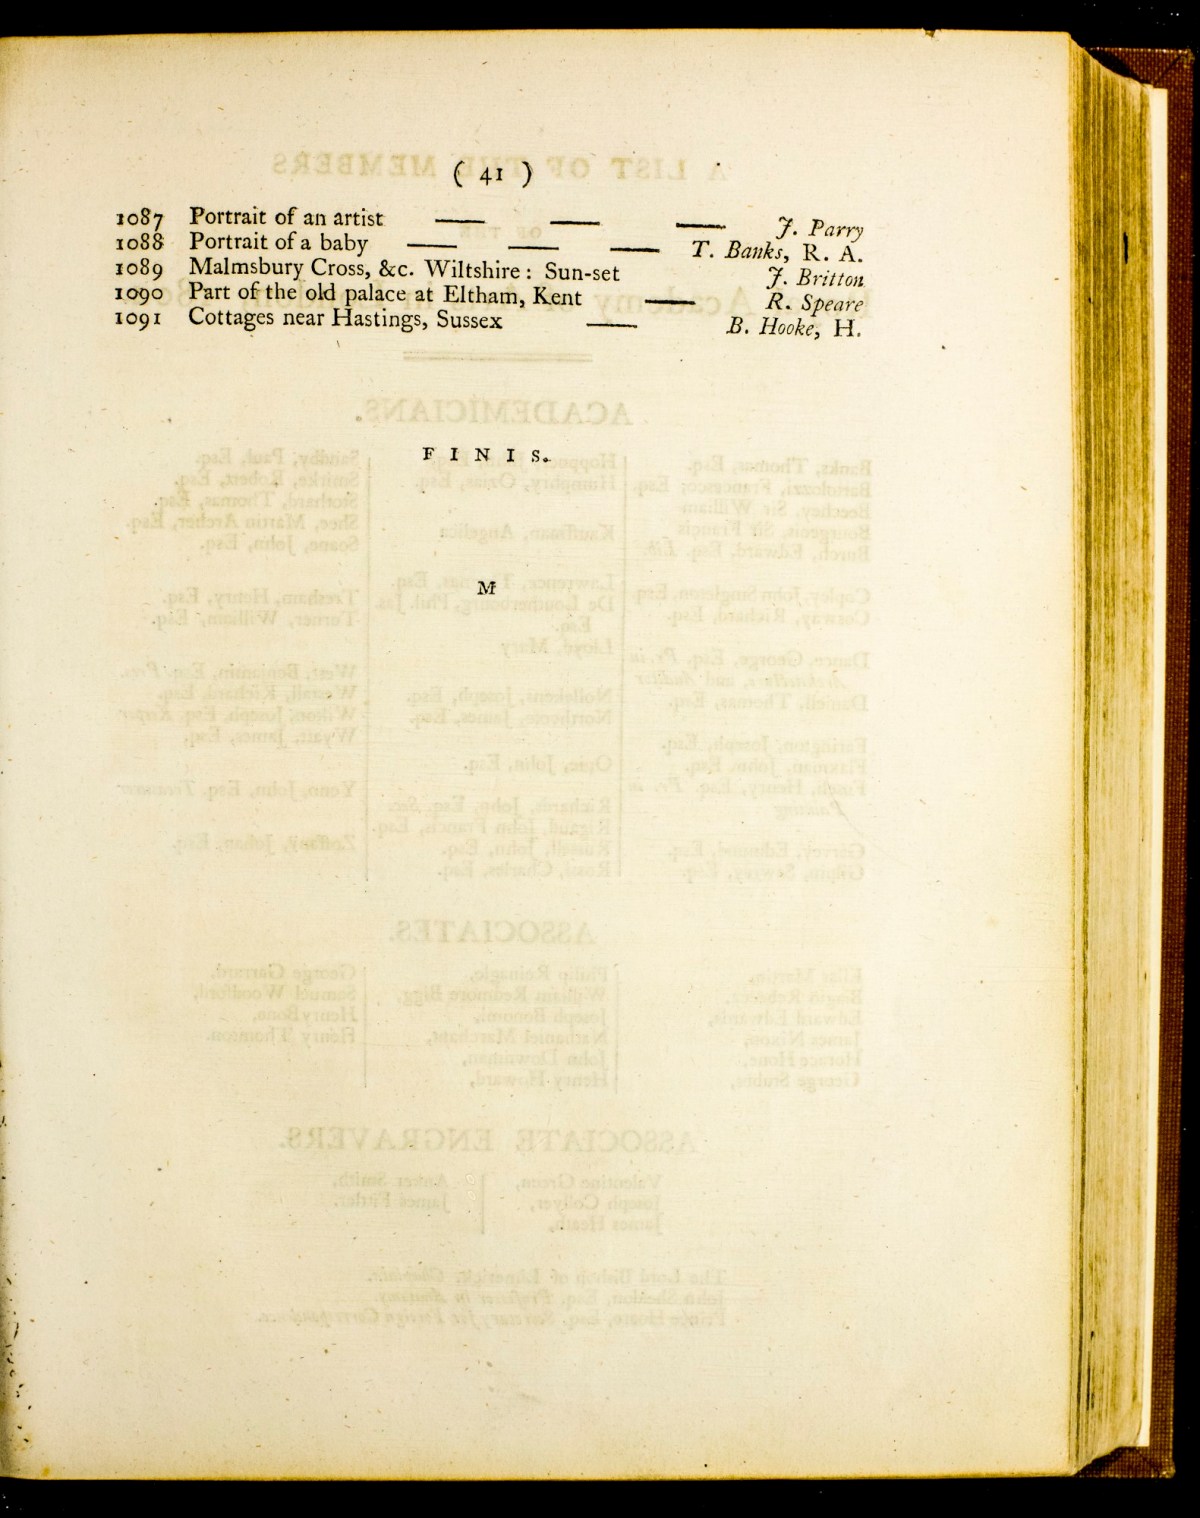 ( 41 )
1087 Portrait of an artist — — — J. Parry
1088 Portrait of a baby — — — T. Banks, R. A.
1089 Malmsbury Cross, &c. Wiltshire : Sun-set J. Britton
1090 Part of the old palace at Eltham, Kent — R. Speare
1091 Cottages near Hastings, Sussex — B. Hooke, H.
FINIS.
M